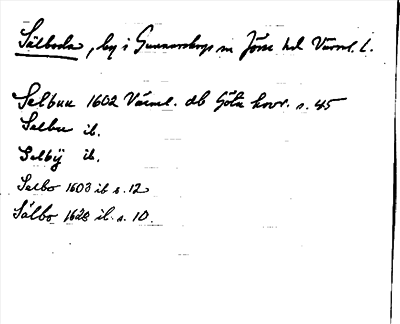 Sälboda, by i Gunnarskogs sn Jösse hd Värml. l.
Selbuu 1602 Värml. db Göta hovr. s. 45
Selbu ib.
Selbÿ ib.
Selbo 1603 ib s. 12
Sälbo 1628 ib. s. 10.